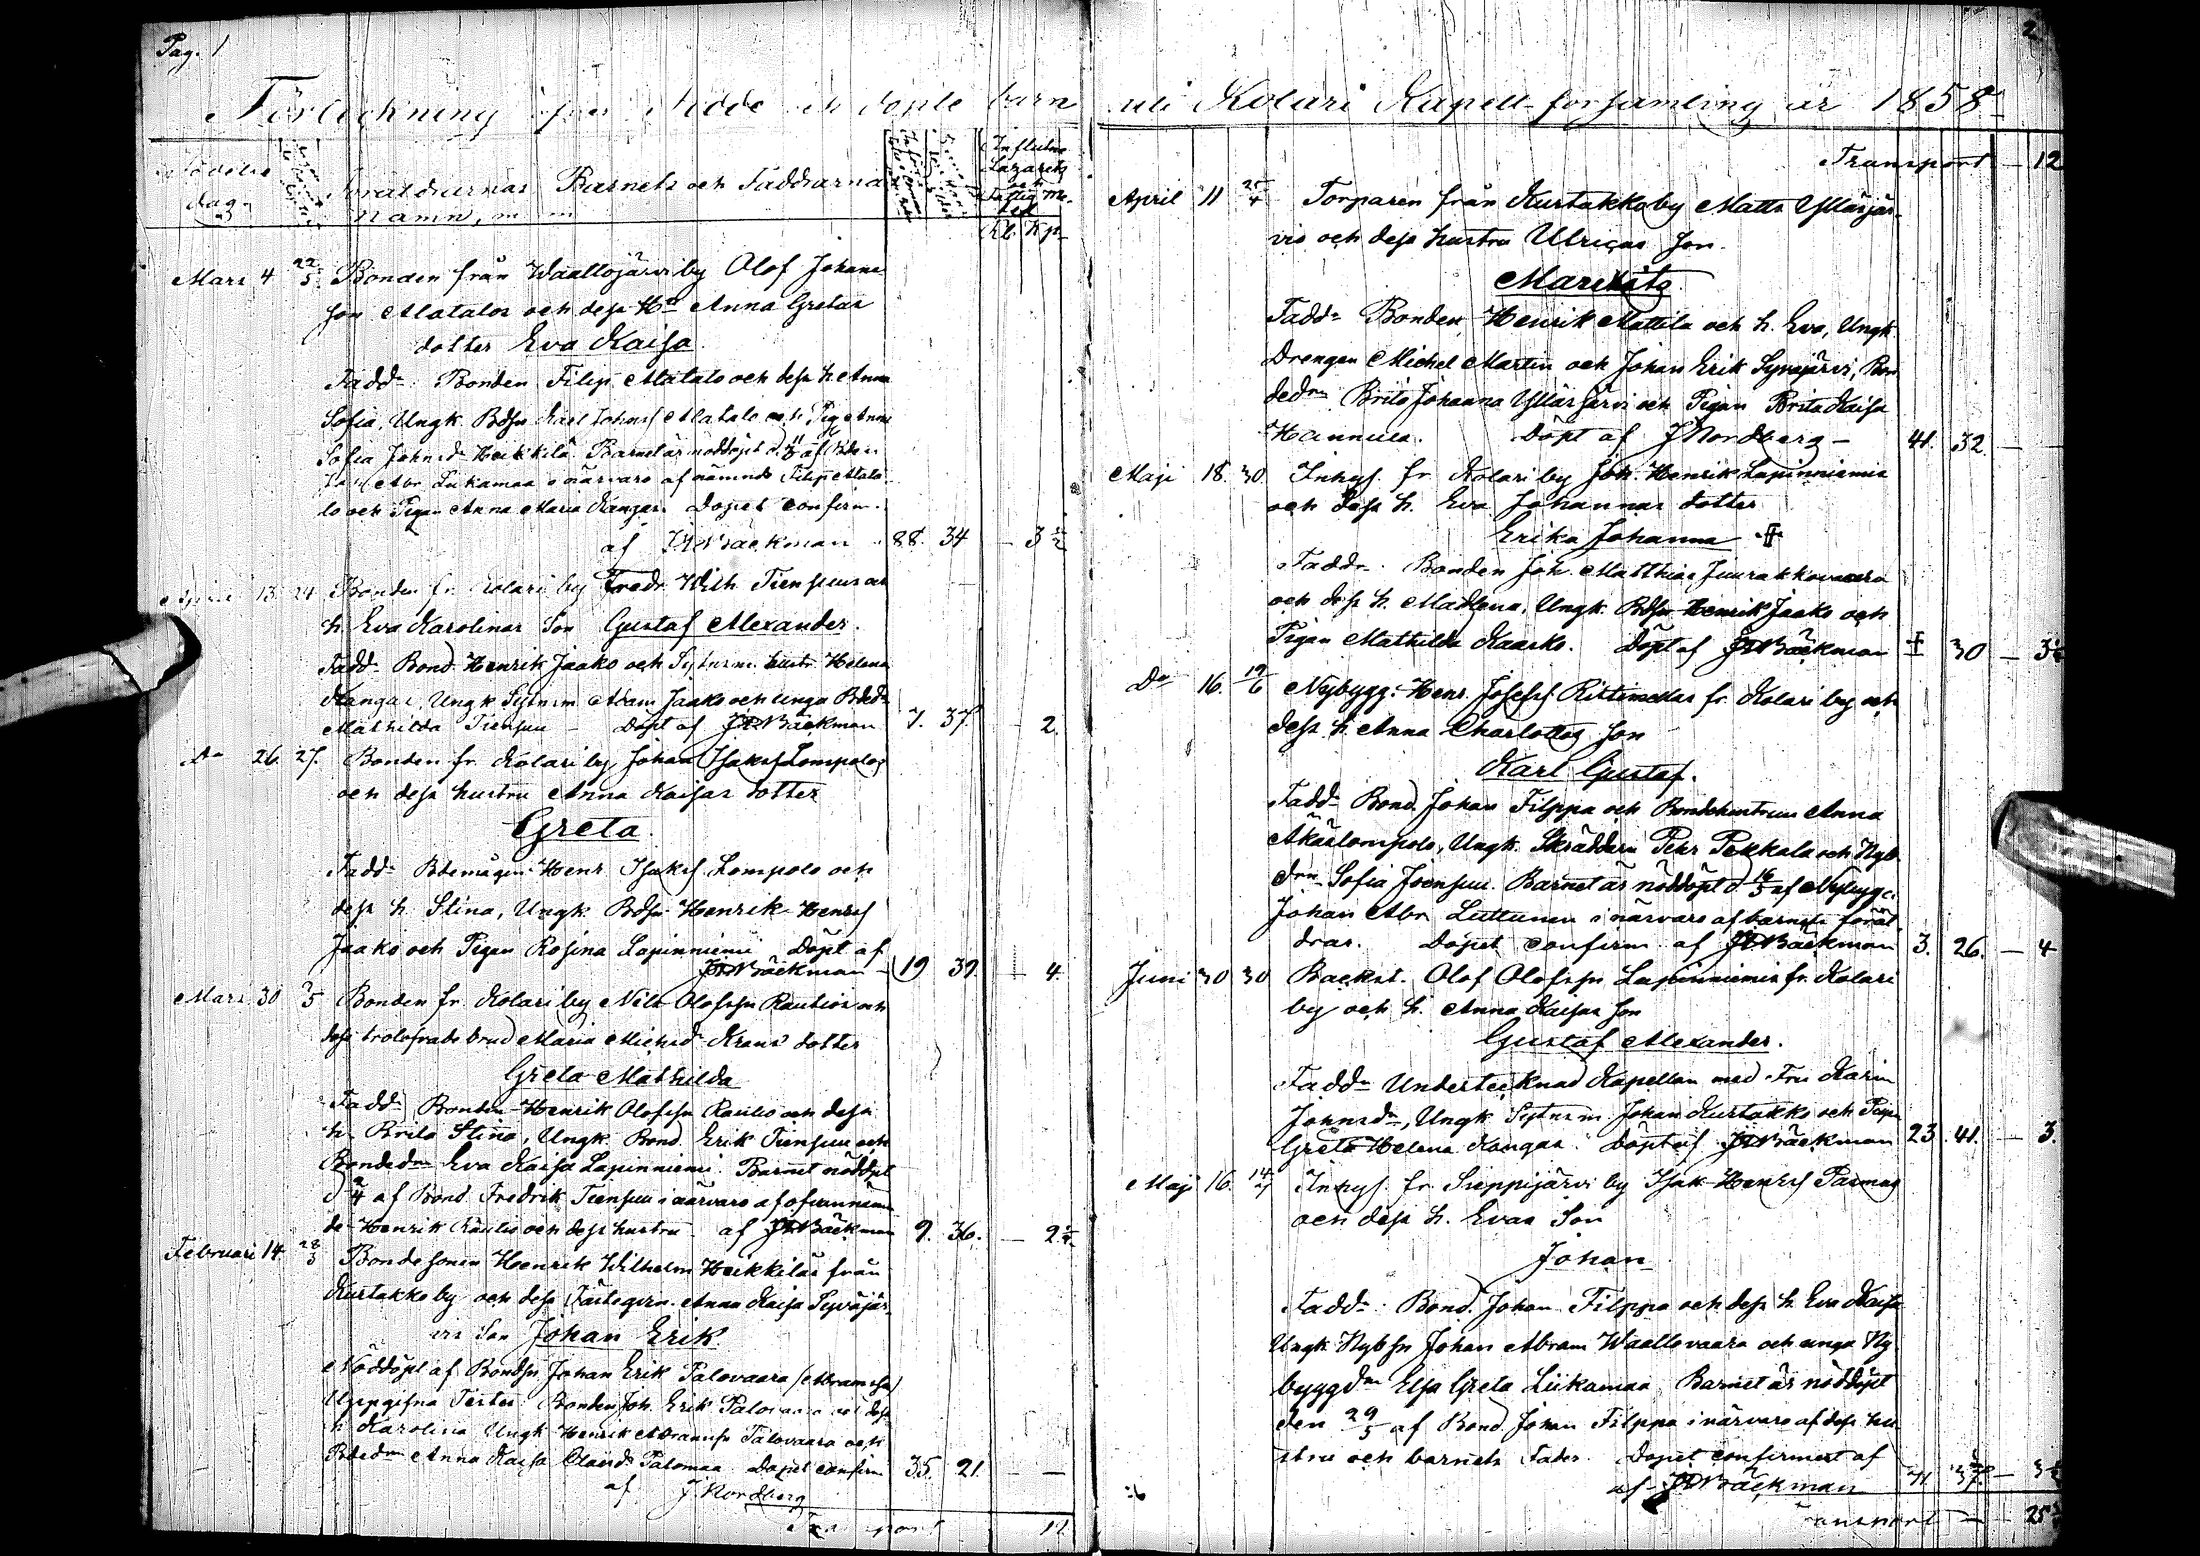 Pag. 1
Förteckning öfver födde och döpte barn
Födelse
dag.
Föräldrarnas Barnets och Faddrarnas
namn, m m
Influtne
Lazarets
Rb. Kp.
Mars 4 22/5 Bonden från Waaltojärvi by Olof Johans
son Alatalos och dess Hu Anna Gretas
dotter Eva Kaisa
Faddr: Bonden Filip Alatalo och dess h. Anna
Sofia, Ungk. Bdsn Karl Johnss Alatalo och Pig. Anna
Sofia Johnsdr Heikkilä. Barnet är nöddöpt d. af Bden
Abr. Liikamaa i närvaro af nämnde Filip Alata
lo och Pigan Anna Maria Kangas. Dopet confirm.
af J. H. Bäckman 88. 34 — 3 1/2
April 13. 24 Bonden fr. Kolari by Fredr. Wilh. Tiensuus och
h. Eva Karolinas Son Gustaf Alexander.
Faddr Bond. Henrik Jaako och hustr. Helena
Kangas, Ungk Abram Jaako och unga Bdedr
Mathilda Tiensuu — Döpt af Bäckman 7. 37. — 2.
Do 26. 27. Bonden fr. Kolari by Johan Isakss Lompolos
och dess hustru Anna Kaisas dotter
Greta.
Faddr Bdemågen Henr. Isakss. Lompolo och
dess h. Stina, Ungk. Bdsn Henrik Henrss
Jaako och Pigan Rosina Lapinniemi Döpt af
Bäckman — 19 39. — 4.
Mars 30 2/5 Bonden fr. Kolari by Nils Olofssn Rautios och
dess trolofvade brud Maria Michsdr Kranss dotter
Greta Mathilda
Faddr Bonden Henrik Olofssn Rautio och dess
h. Brita Stina, Ungk. Bond. Erik Tiensuu och
Bondedrn Eva Kaisa Lapinniemi. Barnet nöddöpt
d. 2/4 af Bond. Fredrik Tiensuu i närvaro af ofvannämn
de Henrik Rautio och dess hustru. af Bäckman 9. 36. — 2 1/2
Februari 14. 28/3 Bondesonen Henrik Wilhelm Heikkiläs från
Kurtakko by och dess Fästeqvn. Anna Kaisa Syväjär
vis Son Johan Erik
Nöddöpt af Bondsn Johan Erik Palovaara (Abramssn)
Uppgifna Testes: Bonden Joh. Erik Palovaara och dess
h Karolina Ungk Henrik Abramssn Palovaara och
Bdedrn Anna Kaisa Olaisdr Palomaa. Dopet confirm 35. 21. — —
af J. Nordberg
Transport 12
2
uti Kolari Kapell-församling år 1858
Transport — 12
April 11 25/4 Torparen från Kurtakko by Matts Ylläsjär
vis och dess hustru Ulricas Son
Faddr Bonden Henrik Mattila och h. Eva, Ungk.
Drengen Michel Martin och Johan Erik Syväjärvi, Bon
dedrn Brita Johanna Ylläsjärvi och Pigan Brita Kaisa
Hannula. Döpt af J Nordberg — 41. 32 —
Maji 18. 30 Inhys. fr. Kolari by Joh. Henrik Lapinniemis
och dess h. Eva Johannas dotter
Erika Johanna
Faddr. Bonden Joh. Matthias Juurakkovaara
och dess h. Madlena, Ungk. Bdsn Henrik Jaako och
Pigan Mathilda Kaarko. Döpt af Bäckman 30 — 3 1/2
Do 16. 19/6 Nybygg: Henr. Josefss Rittimellas fr. Kolari by och
dess h. Anna Charlottas Son
Karl Gustaf.
Faddr Bond. Johan Filppa och Bondehustrun Anna
Äkäslompolo, Ungk. Skräddarn Pehr Pekkala och Nyb.
drn Sofia Joensuu. Barnet är nöddöpt d 16/5 af Nybygg.
Johan Abr. Luttunen i närvaro af barnets föräl
drar. Dopet confirm af Bäckman 3. 26. — 4
Juni 30 30 Backst. Olof Olofssn Lapinniemis fr. Kolari
by och h. Anna Kaisas Son
Gustaf Alexander.
Faddr Undertecknad Kapellan med Fru Karin
Johnsdr, Ungk. Johan Kurtakko och Pigan
Greta Helena Kangas. Döpt af Bäckman 23. 41. — 3.
Maji 16. 14/7 Inhys. fr. Sieppijärvi by Isak Henrss Parmas
och dess h. Evas Son
Johan
Faddr: Bond. Johan Filppa och dess h. Eva Kaisa
Ungk. Nybsn Johan Abram Waaltovaara och unga Ny
byggdrn Elsa Greta Liikamaa, Barnet är nöddöpt
den 29/5 af Bond. Johan Filppa i närvaro af dess hu
stru och barnets Fader. Dopet confirmert af
af Bäckman 37. — 3 1/2
Transport — 25